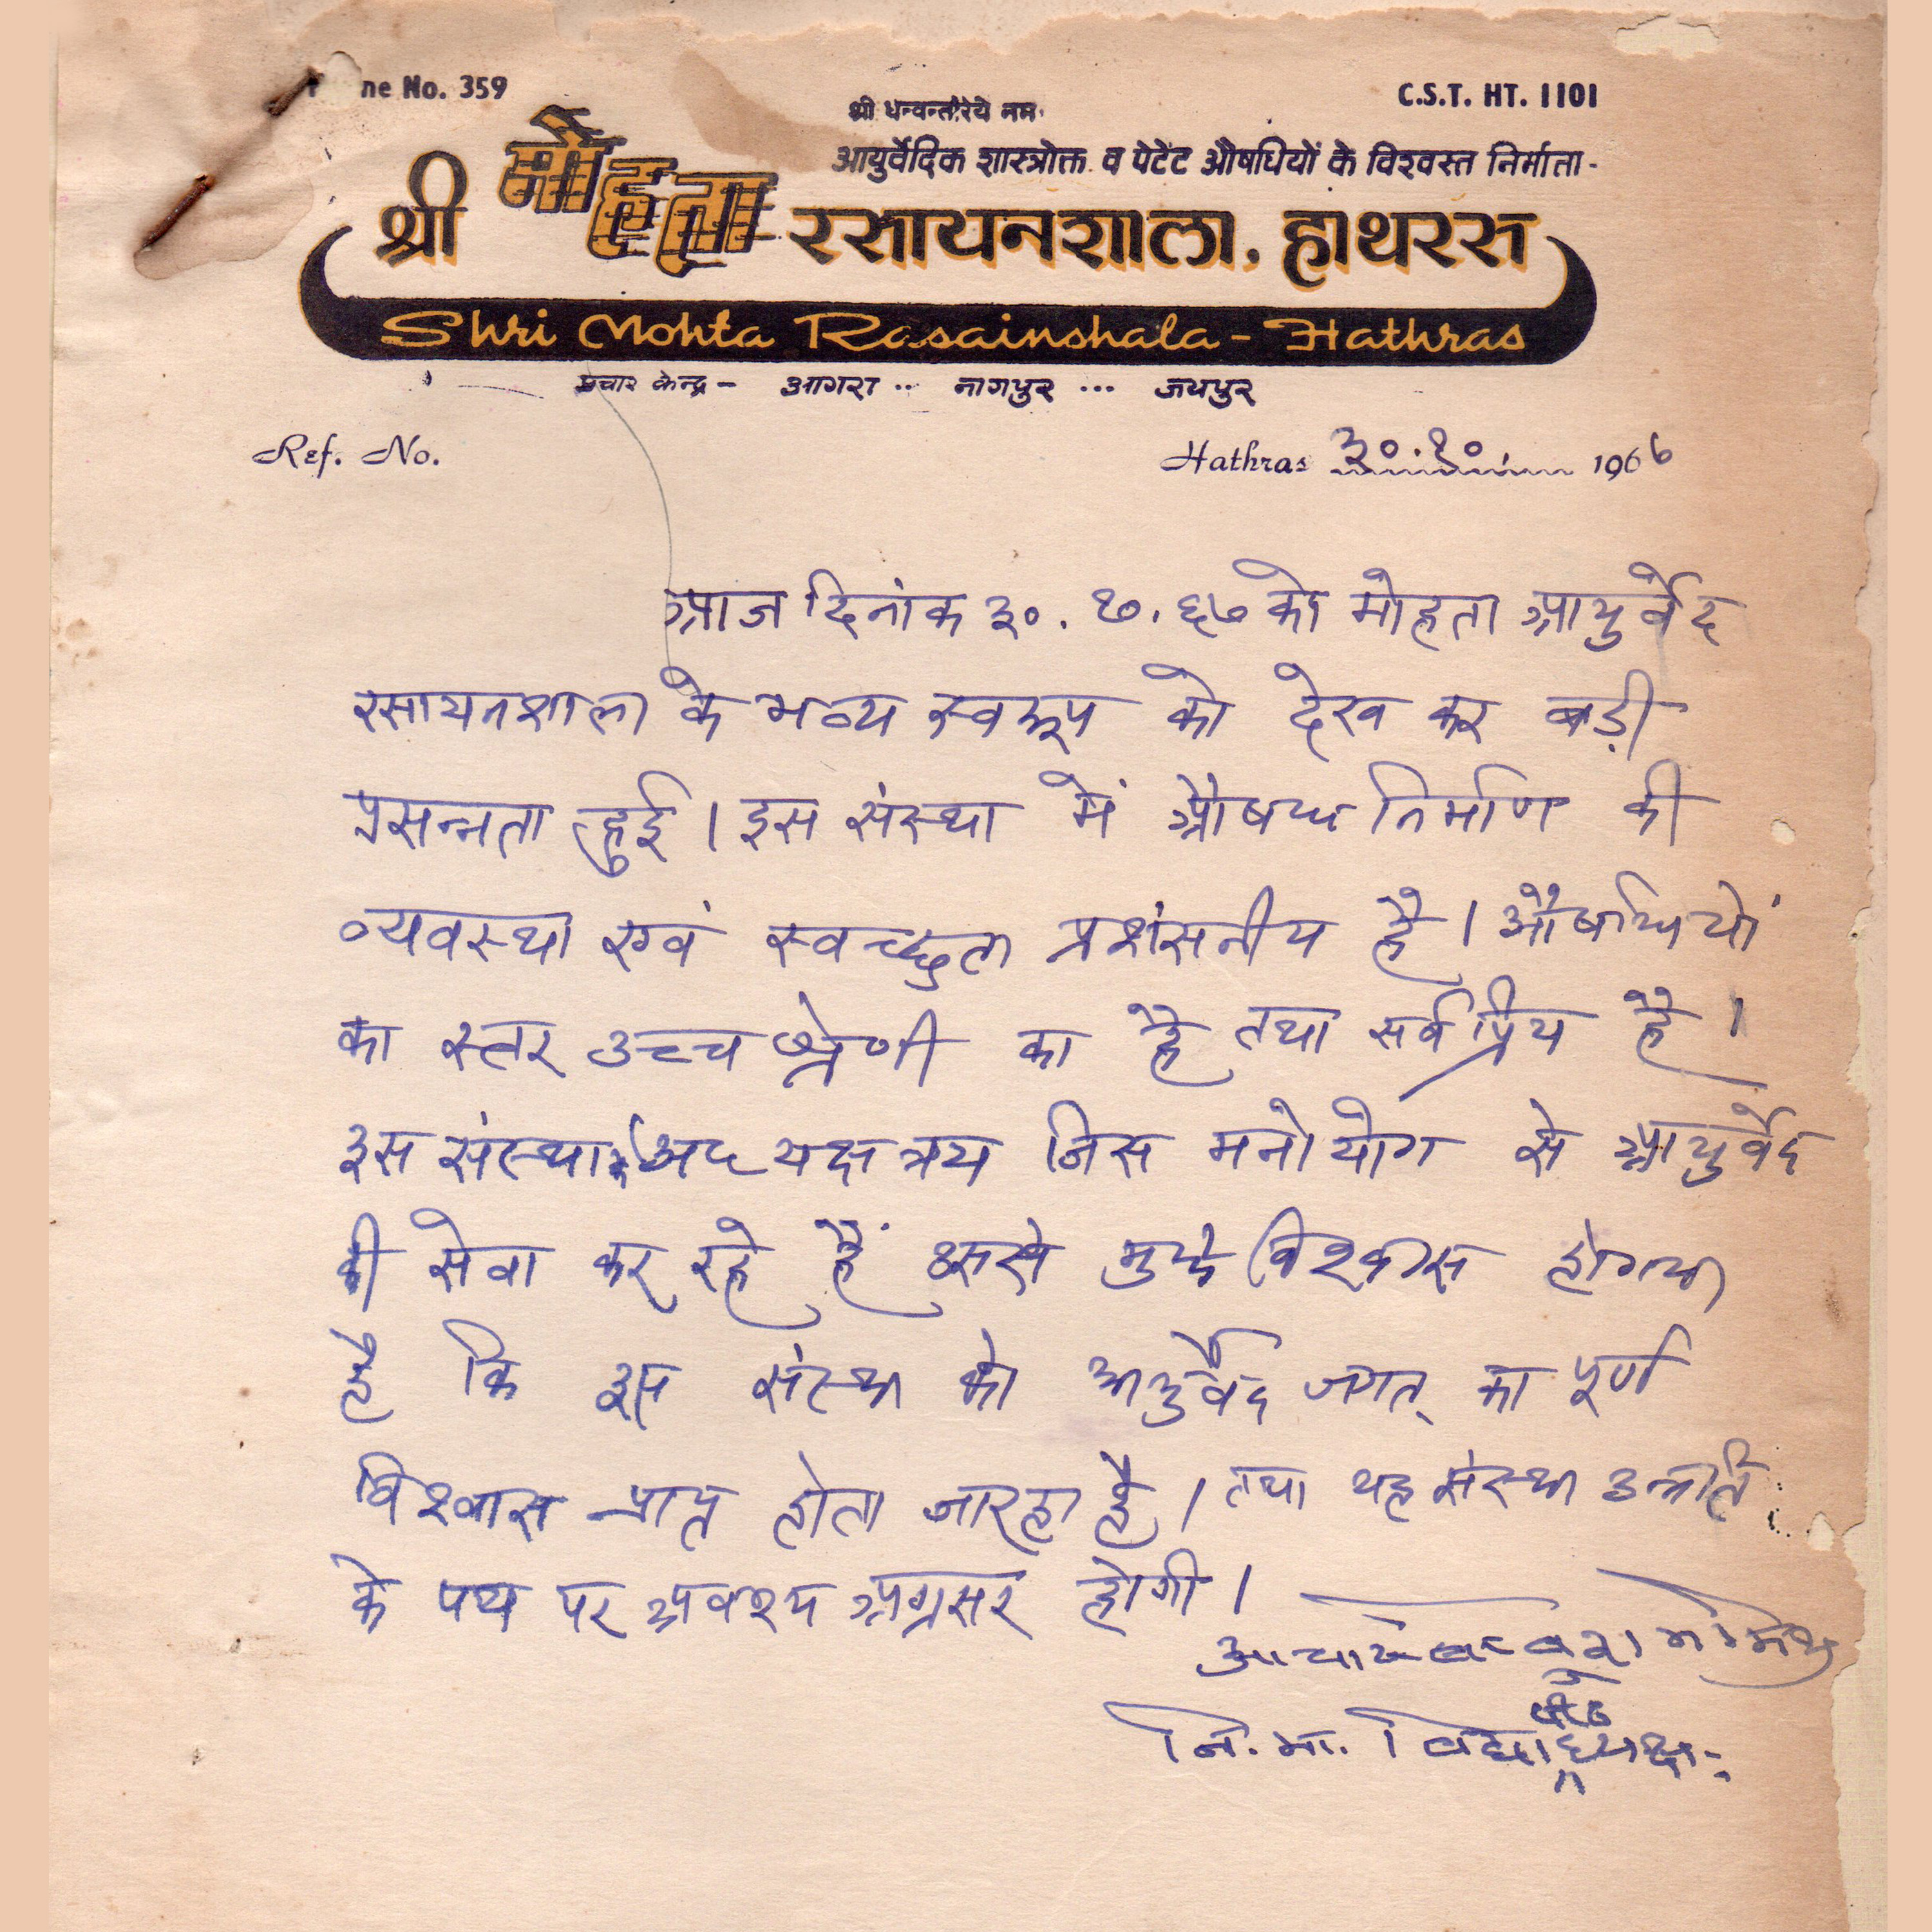 ne No. 359
C.S.T. HT. 1101
श्री धन्वन्तरिये नमः
आयुर्वेदिक शास्त्रोक्त व पेटेंट औषधियों के विश्वस्त निर्माता -
श्री मोहता रसायनशाला, हाथरस
Shri Mohta Rasainshala - Hathras
प्रचार केन्द्र - आगरा .. नागपुर ... जयपुर
Ref. No.
Hathras ३०.१०. 1966
आज दिनांक ३०. १०. ६७ को मोहता आयुर्वेद
रसायनशाला के भव्य स्वरूप को देख कर बड़ी
प्रसन्नता हुई। इस संस्था में औषध निर्माण की
व्यवस्था एवं स्वच्छता प्रशंसनीय है। औषधियों
का स्तर उच्च श्रेणी का है तथा सर्वप्रिय है।
इस संस्था के अध्यक्ष त्रय जिस मनोयोग से आयुर्वेद
की सेवा कर रहे हैं उससे मुझे विश्वास होगया
है कि इस संस्था को आयुर्वेद जगत् का पूर्ण
विश्वास प्राप्त होता जारहा है। तथा यह संस्था उन्नति
के पथ पर अवश्य अग्रसर होगी।
आचार्य
नि. भा. विद्यापीठाध्यक्षः